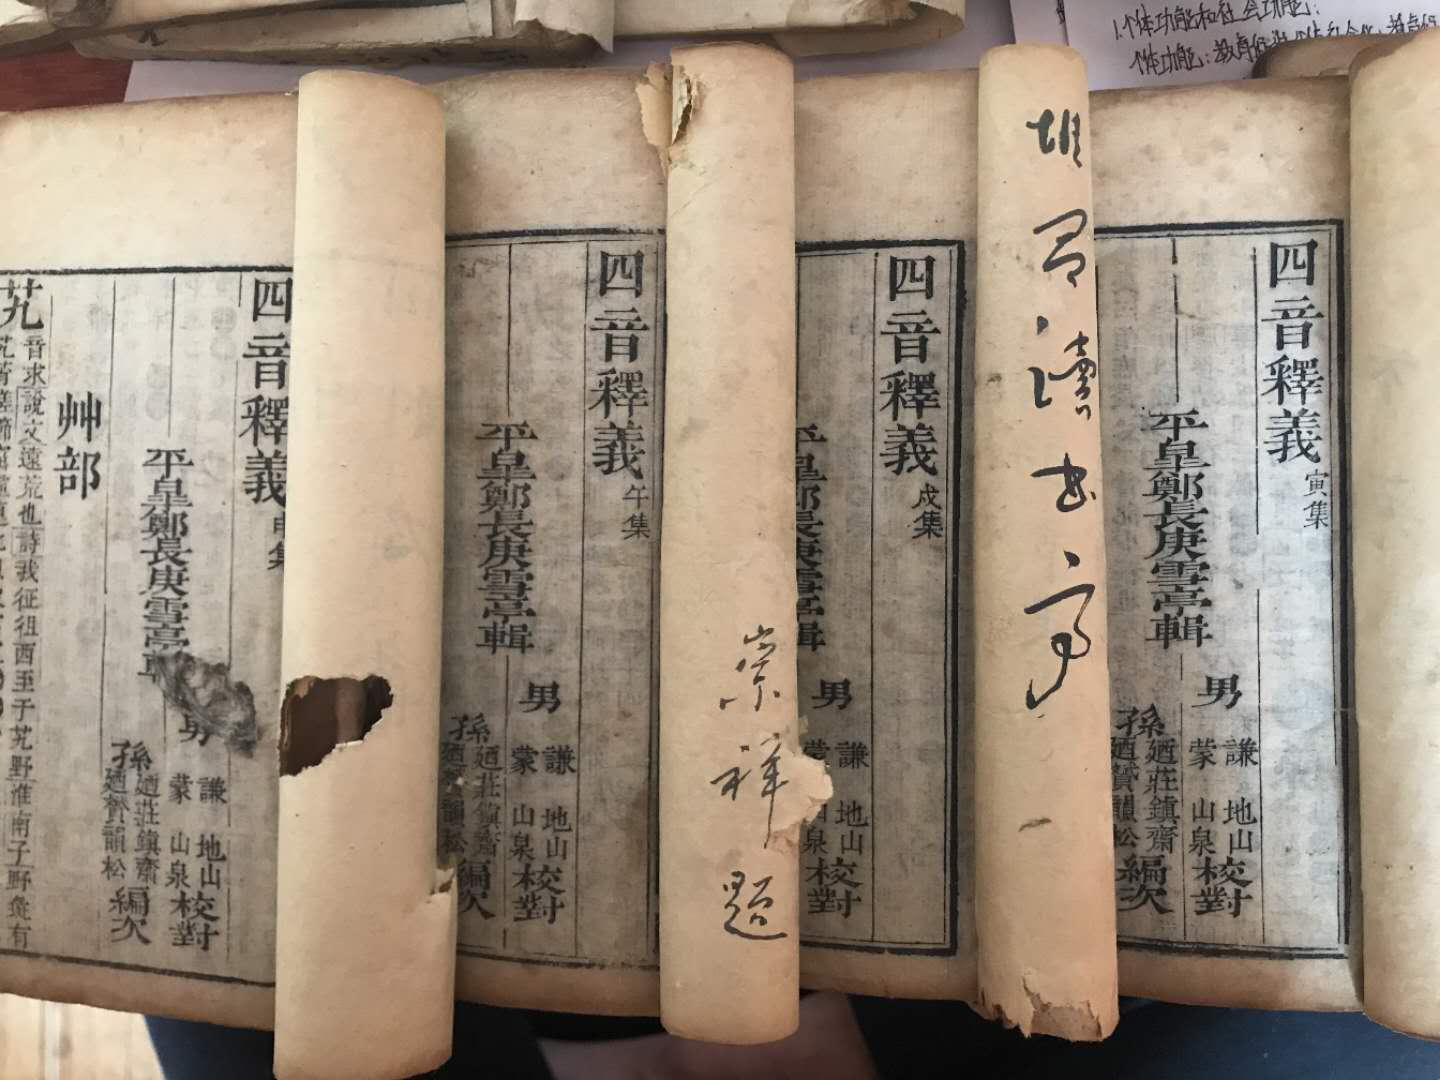 四音釋義寅集
平臯鄭長庚雪亭輯
男
謙 地山
蒙 山泉
校對
孫
廼莊鎮齋
廼贇韻松
編次
讀書
四音釋義戌集
平臯鄭長庚雪亭輯
男
謙 地山
蒙 山泉
校對
崇祥題
四音釋義午集
平臯鄭長庚雪亭輯
男
謙 地山
蒙 山泉
校對
孫
廼莊鎮齋
廼贇韻松
編次
四音釋義申集
平臯鄭長庚雪亭
男
謙 地山
蒙 山泉
校對
孫
廼莊鎮齋
廼贇韻松
編次
艸部
艽
音求說文遠荒也詩我征徂西至于艽野淮南子野彘有
1.个体功能和社会功能:
个体功能:教育